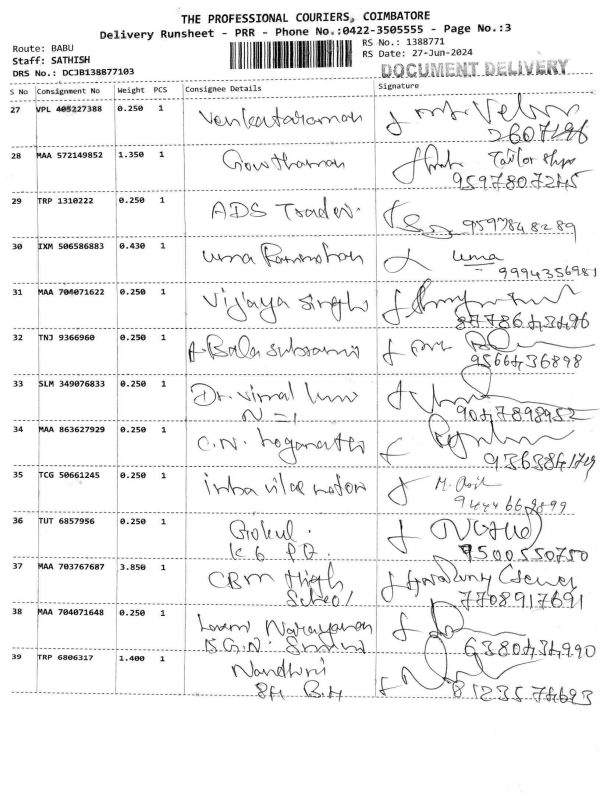 THE PROFESSIONAL COURIERS, COIMBATORE
Delivery Runsheet - PRR - Phone No.:0422-3505555 - Page No.:3
Route: BABU
RS No.: 1388771
Staff: SATHISH
RS Date: 27-Jun-2024
DRS No.: DCJB138877103
DOCUMENT DELIVERY
S No Consignment No Weight PCS Consignee Details Signature
27 VPL 405227388 0.250 1 Venkataraman
2607196
28 MAA 572149852 1.350 1 Gowthaman Tailor shop
9597807245
29 TRP 1310222 0.250 1 ADS Trader.
9597848289
30 IXM 506586883 0.430 1 uma Rammohan uma
9994356981
31 MAA 704071622 0.250 1 Vijaya Singh
8778643496
32 TNJ 9366960 0.250 1 A. Bala subramani
9566436898
33 SLM 349076833 0.250 1 Dr. Vimal kum
N = 1 9047898952
34 MAA 863627929 0.250 1 C.N. Loganathi
9363841709
35 TCG 50661245 0.250 1
9444662899
36 TUT 6857956 0.250 1 Gokul.
K G 9500550750
37 MAA 703767687 3.850 1 CBM High
School 7708917691
38 MAA 704071648 0.250 1 Laxmi Narayanan
6380434990
39 TRP 6806317 1.400 1 Nandhini
8123574693